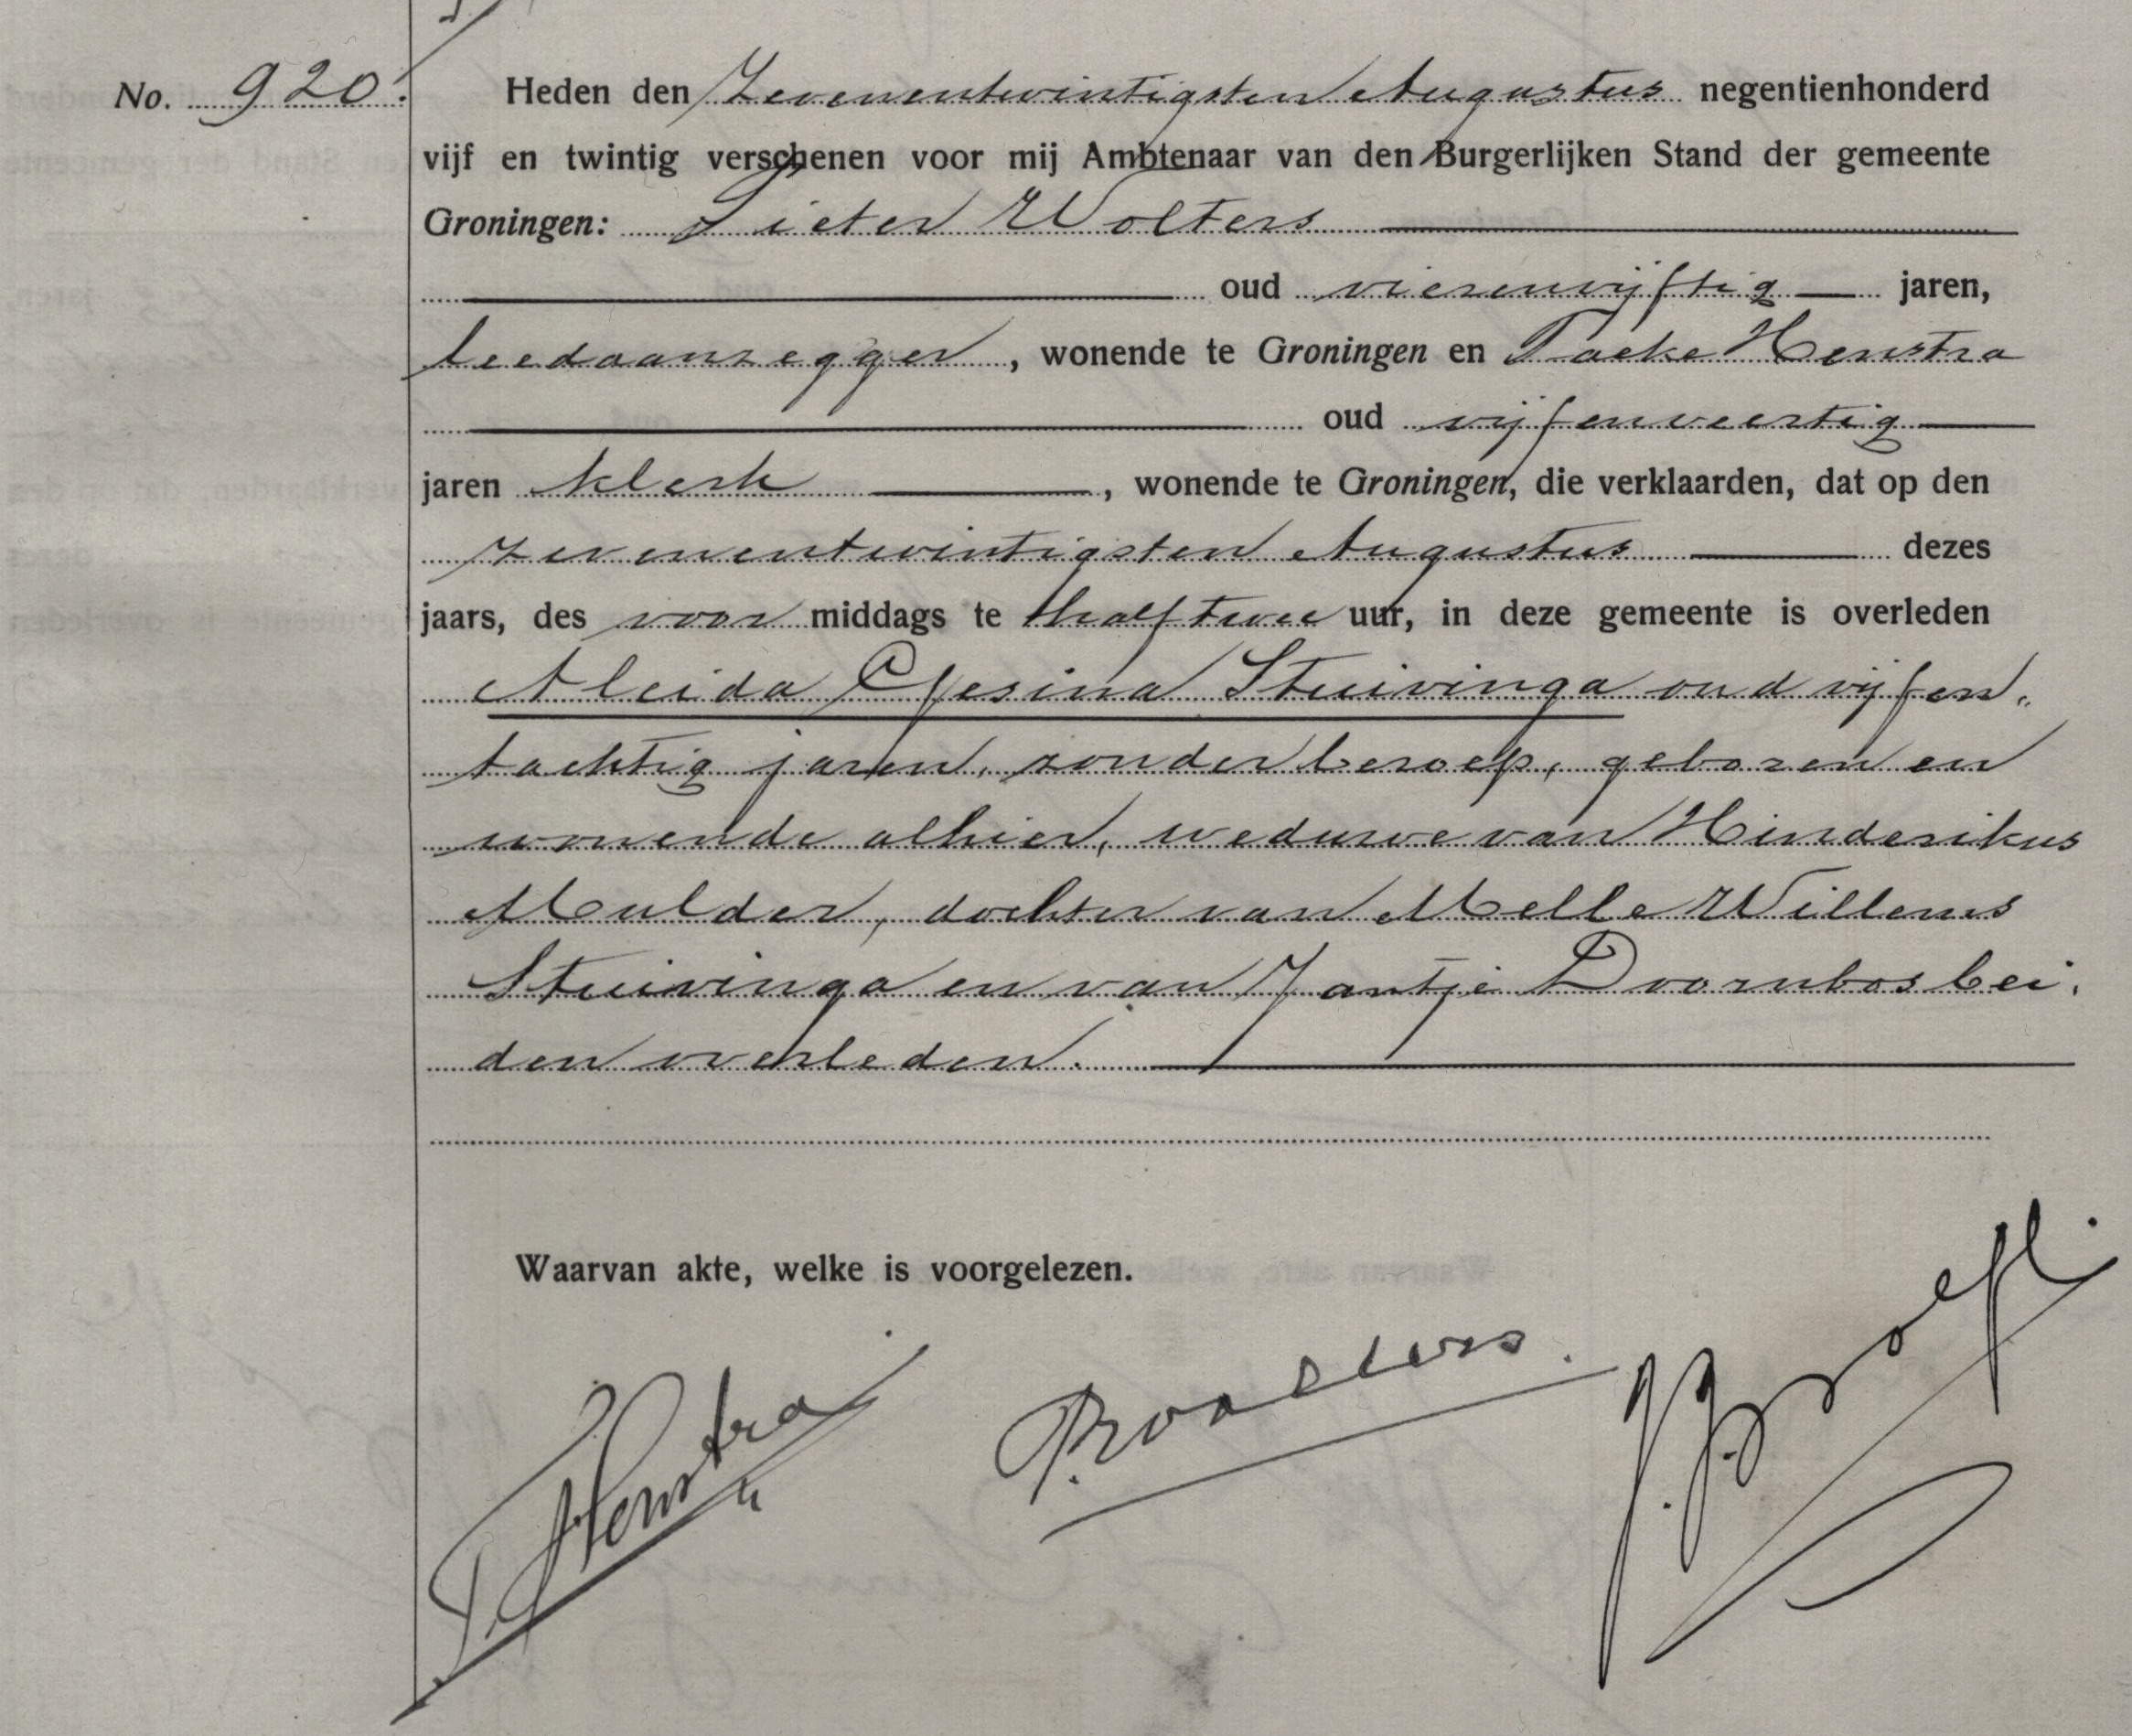 No. 920. Heden den Zevenentwintigsten Augustus negentienhonderd
vijf en twintig verschenen voor mij Ambtenaar van den Burgerlijken Stand der gemeente
Groningen: Pieter Wolters
oud vierenvijftig jaren,
leedaanzegger, wonende te Groningen en Taeke Henstra
oud vijfenveertig
jaren klerk, wonende te Groningen, die verklaarden, dat op den
zevenentwintigsten Augustus dezes
jaars, des voor middags te half twee uur, in deze gemeente is overleden
Aleida Gesina Stuivinga oud vijfen„
tachtig jaren, zonder beroep, geboren en
wonende alhier, weduwe van Hinderikus
Mulder, dochter van Melle Willems
Stuivinga en van Jantje Doornbos bei.
den overleden.
Waarvan akte, welke is voorgelezen.
T. Henstra P. Wolters.